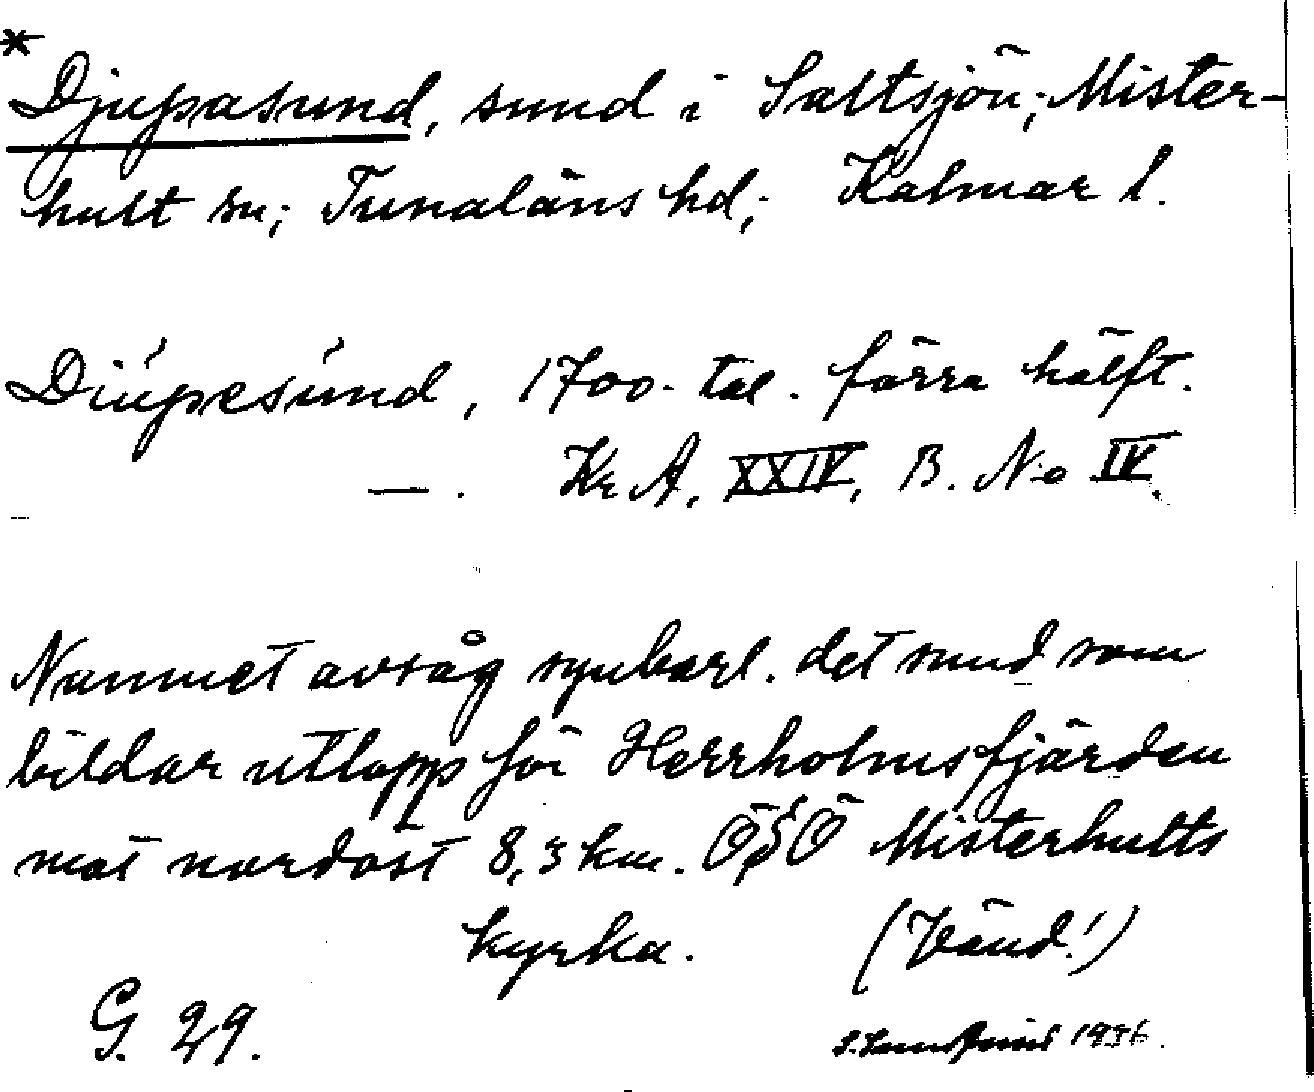 *
Djupasund, sund i Saltsjön; Mister-
hult sn; Tunaläns hd; Kalmar l.
Diúpesúnd, 1700-tal. förra hälft.
—. Kr A. XXIV, B. No IV.
Namnet avsåg synbarl. det sund som
bildar utlopp för Herrholmsfjärden
mot nordost 8,3 km. ÖSÖ Misterhults
kyrka. (Vänd!)
G. 29.
1936.